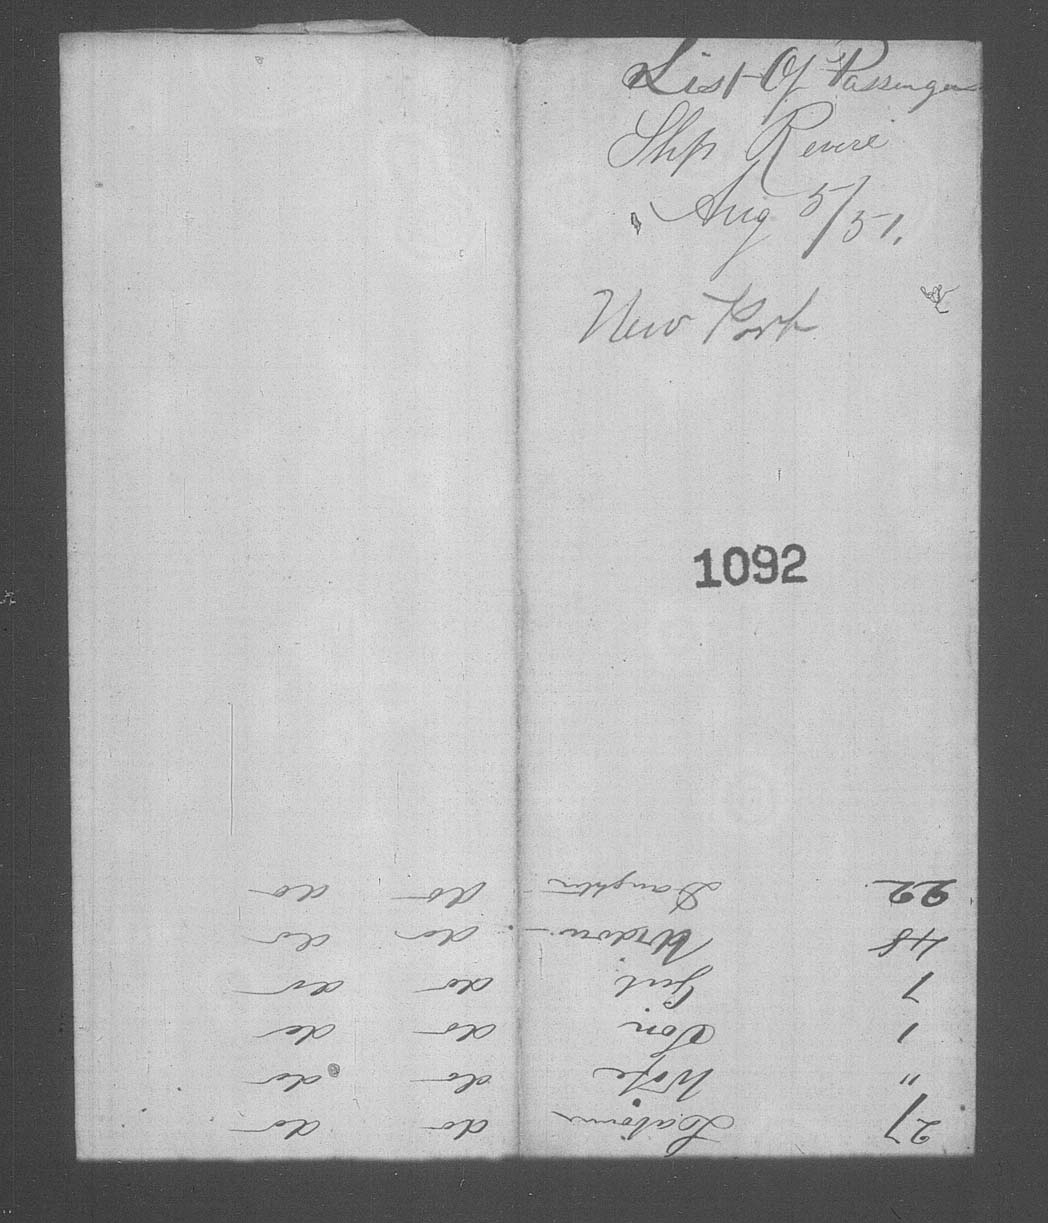 List Of Passengers
Ship Revere
Aug 5/51.
New York
1092
27 Laborer do do
" Wife do do
1 Son do do
7 Girl do do
48 Widow do do
22 Daughter do do